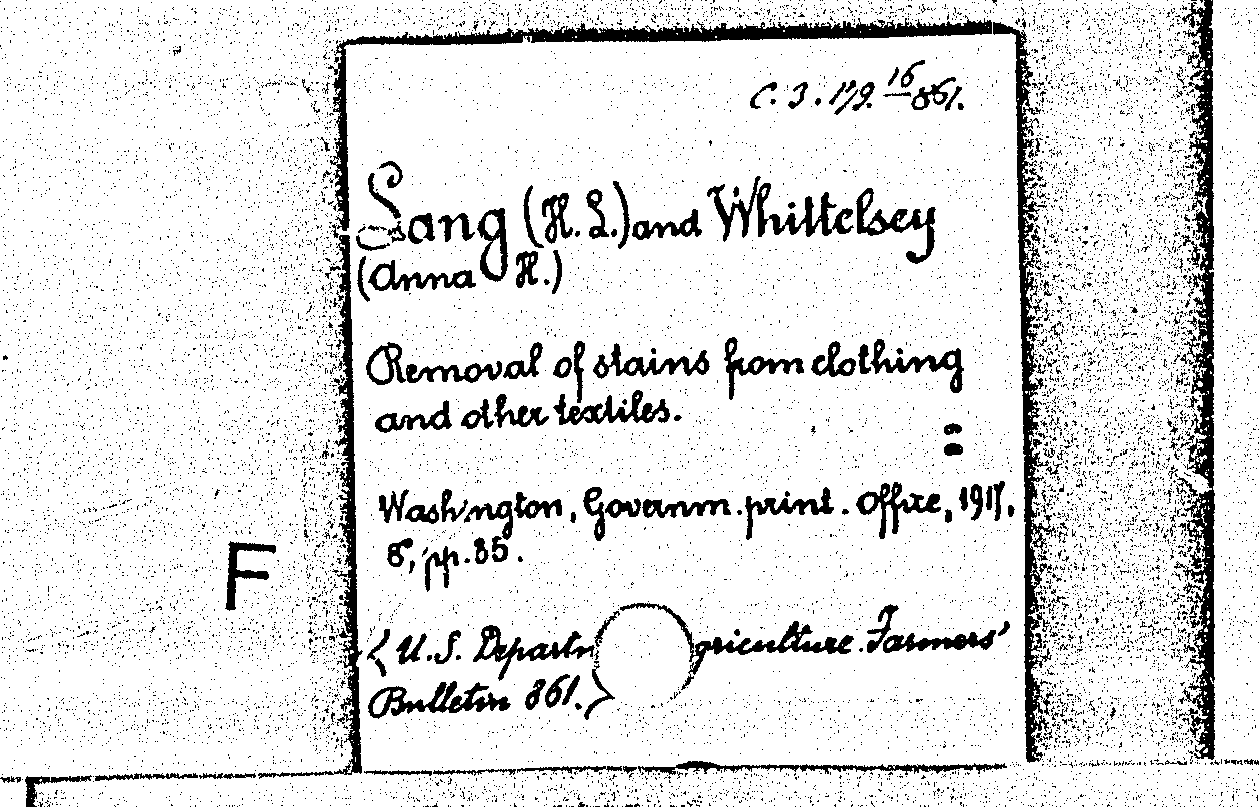 C. 3. 179. 16/861.
Lang (H. L.) and Whittelsey
(Anna H.)
Removal of stains from clothing
and other textiles.
=
Washington, Governm. print. Office, 1917,
8°, pp. 35.
F
<U.S. Departm griculture. Farmers'
Bulletin 861.>